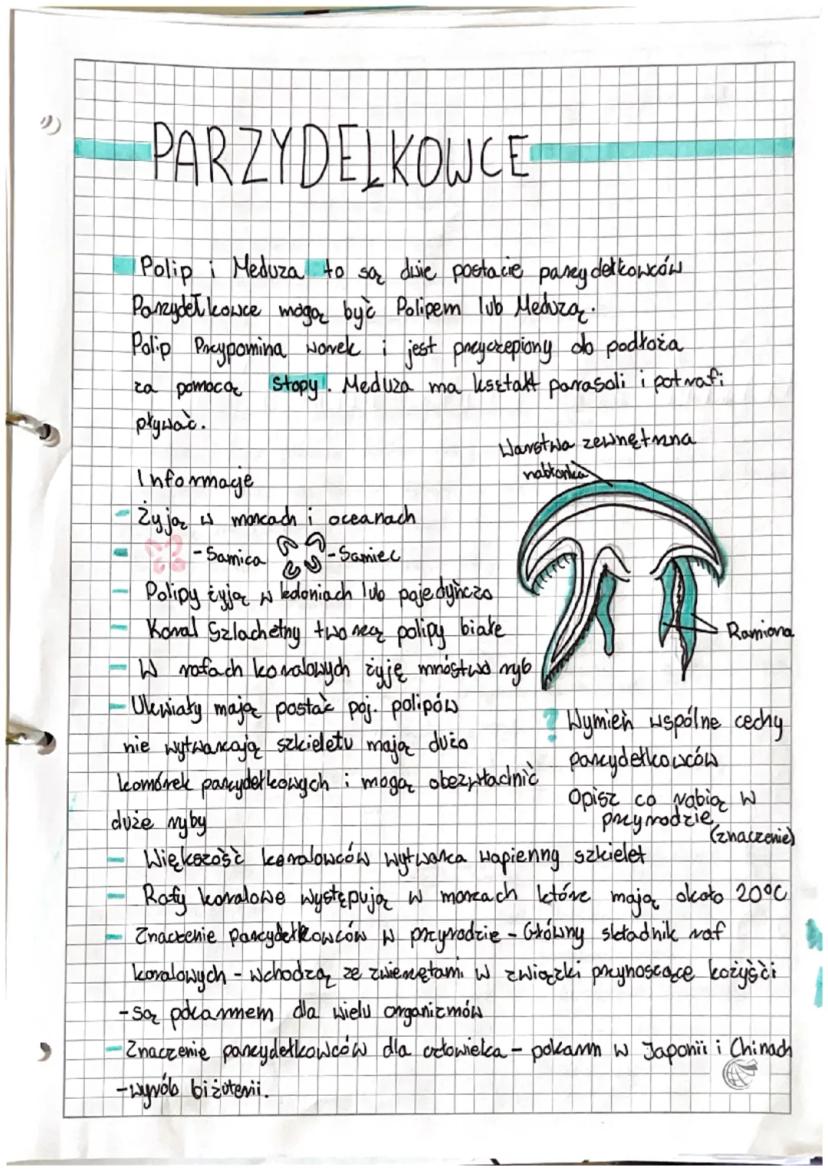 PARZYDEŁKOWCE
Polip i Meduza to są dwie postacie parzydełkowców
Parzydełkowce mogą być Polipem lub Meduzą.
Polip Przypomina worek i jest przyczepiony do podłoża
za pomocą stopy. Meduza ma kształt parasoli i potrafi
pływać.
Warstwa zewnętrzna
nabłonka
Informacje
- Żyją w morzach i oceanach
- -Samica -Samiec
- Polipy żyją w koloniach lub pojedyńczo
- Koral Szlachetny tworzą polipy białe
Ramiona
- W rafach koralowych żyję mnóstwo ryb
- Ukwiały mają postać poj. polipów
nie wytwarzają szkieletu mają dużo
komórek parzydełkowych i mogą obezwładnić
duże ryby
? Wymień wspólne cechy
parzydełkowców
Opisz co robią w
przyrodzie
(znaczenie)
- Większość koralowców wytwarza wapienny szkielet
- Rafy koralowe występują w morzach które mają około 20°C
- Znaczenie parzydełkowców w przyrodzie - Główny składnik raf
koralowych - wchodzą ze zwierzętami w związki przynoszące kożyści
- Są pokarmem dla wielu organizmów
- Znaczenie parzydełkowców dla człowieka - pokarm w Japonii i Chinach
- wyrób biżuterii.